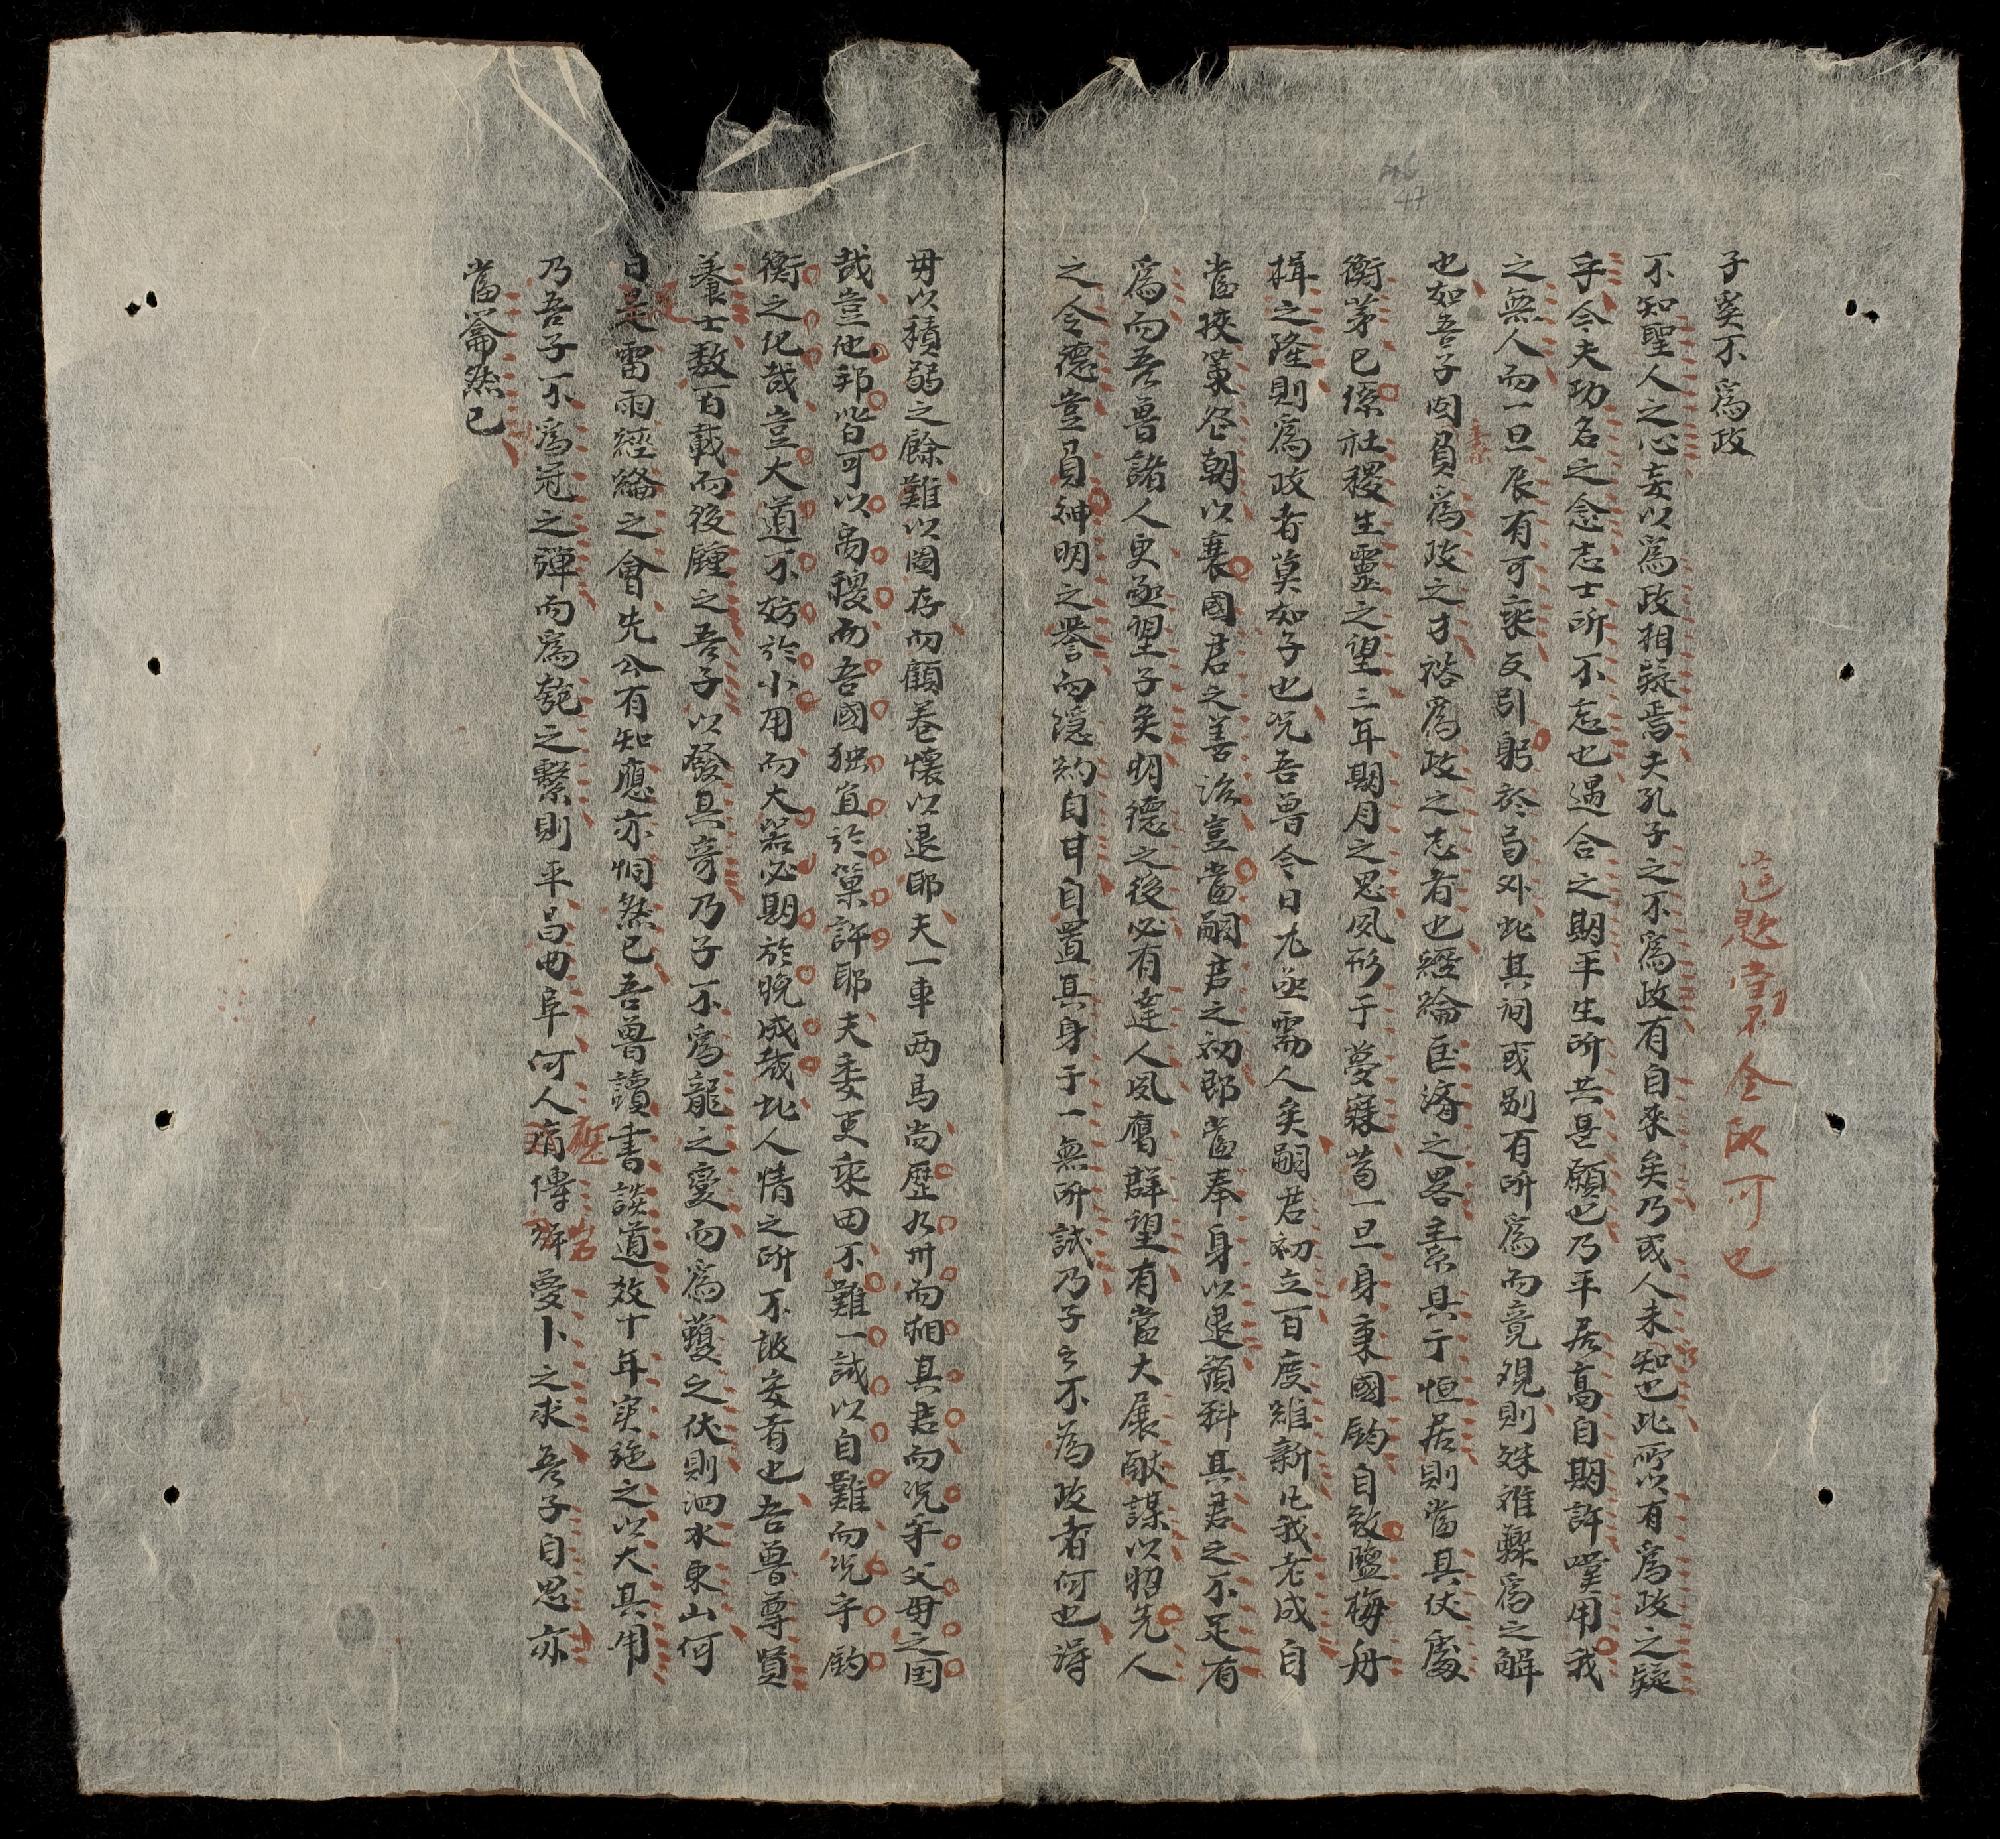 子奚不爲政
不知聖人之心妄以爲政相疑焉夫孔子之不爲政有自來矣乃或人未知也此所以有爲政之疑
乎今夫功名之念志士所不忘也遇合之期平生所共甚願也乃平居高自期許嘆用我
之無人而一旦展有可乘反引躬於局外此其间或别有所爲而竟覌則殊难驟爲之解
也如吾子固負爲政之才裕爲政之志者也經綸匡濟之畧素具于恒居則當其伏處
衡茅已係社稷生靈之望三年期月之思夙形于夢寐苟一旦身秉國鈞自致鹽梅舟
楫之隆則爲政者莫如子也况吾魯今日尤亟需人矣嗣君初立百度維新凡我老成自
當挾策登朝以襄國君之善治豈當嗣君之初即當奉身以退預料其君之不足有
爲而吾魯諸人更亟望子矣明德之後必有達人夙膺群望有當大展猷謀以昭先人
之令德豈負神明之譽而隱約自甘自置其身于一無所試乃子之不爲政者何也謂
毋以積弱之餘難以圖存而顧卷懷以退耶夫一車两馬尚歷九州而相其君而况乎父母之国
哉豈他邦皆可以禹稷而吾國独宜於巢許耶夫委吏乘田不難一試以自難而况乎鈞
衡之化哉豈大道不妨於小用而大器必期於晚成哉此人情之所不敢安者也吾魯尊賢
養士数百載而後鍾之吾子以發其竒乃子不爲龍之變而爲蠖之伏則泗水東山何
日是雷雨經綸之會先公有知應亦恫然已吾曾讀書談道数十年宲施之以大其用
乃吾子不爲冠之彈而爲匏之繫則平昌曲阜何人 傳 夢卜之求吾子自思亦
當 然已
這題 全 可也